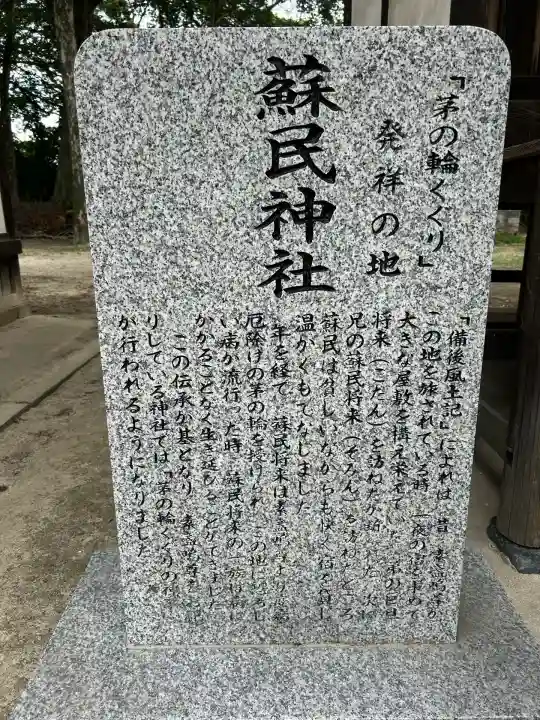 「茅の輪くぐり」
発祥の地
蘇民神社
『備後風土記』によれば、昔、
この地を旅されている時、一夜の宿を求めて
大きな屋敷を構え栄えて 弟の巨旦
将来(こたん)を訪ねたが断
兄の蘇民将来(そみん)を訪ねたところ
蘇民は貧しいながらも快く宿を貸し
温かくもてなしました
年を経て、蘇民将来は
厄除けの茅の輪を授けられ、この地に
い病が流行った時、蘇民将来の一族は病に
かかることなく生き延びることができました
この伝承が基となり、
りしている神社では「茅の輪くぐりの
が行われるようになりました